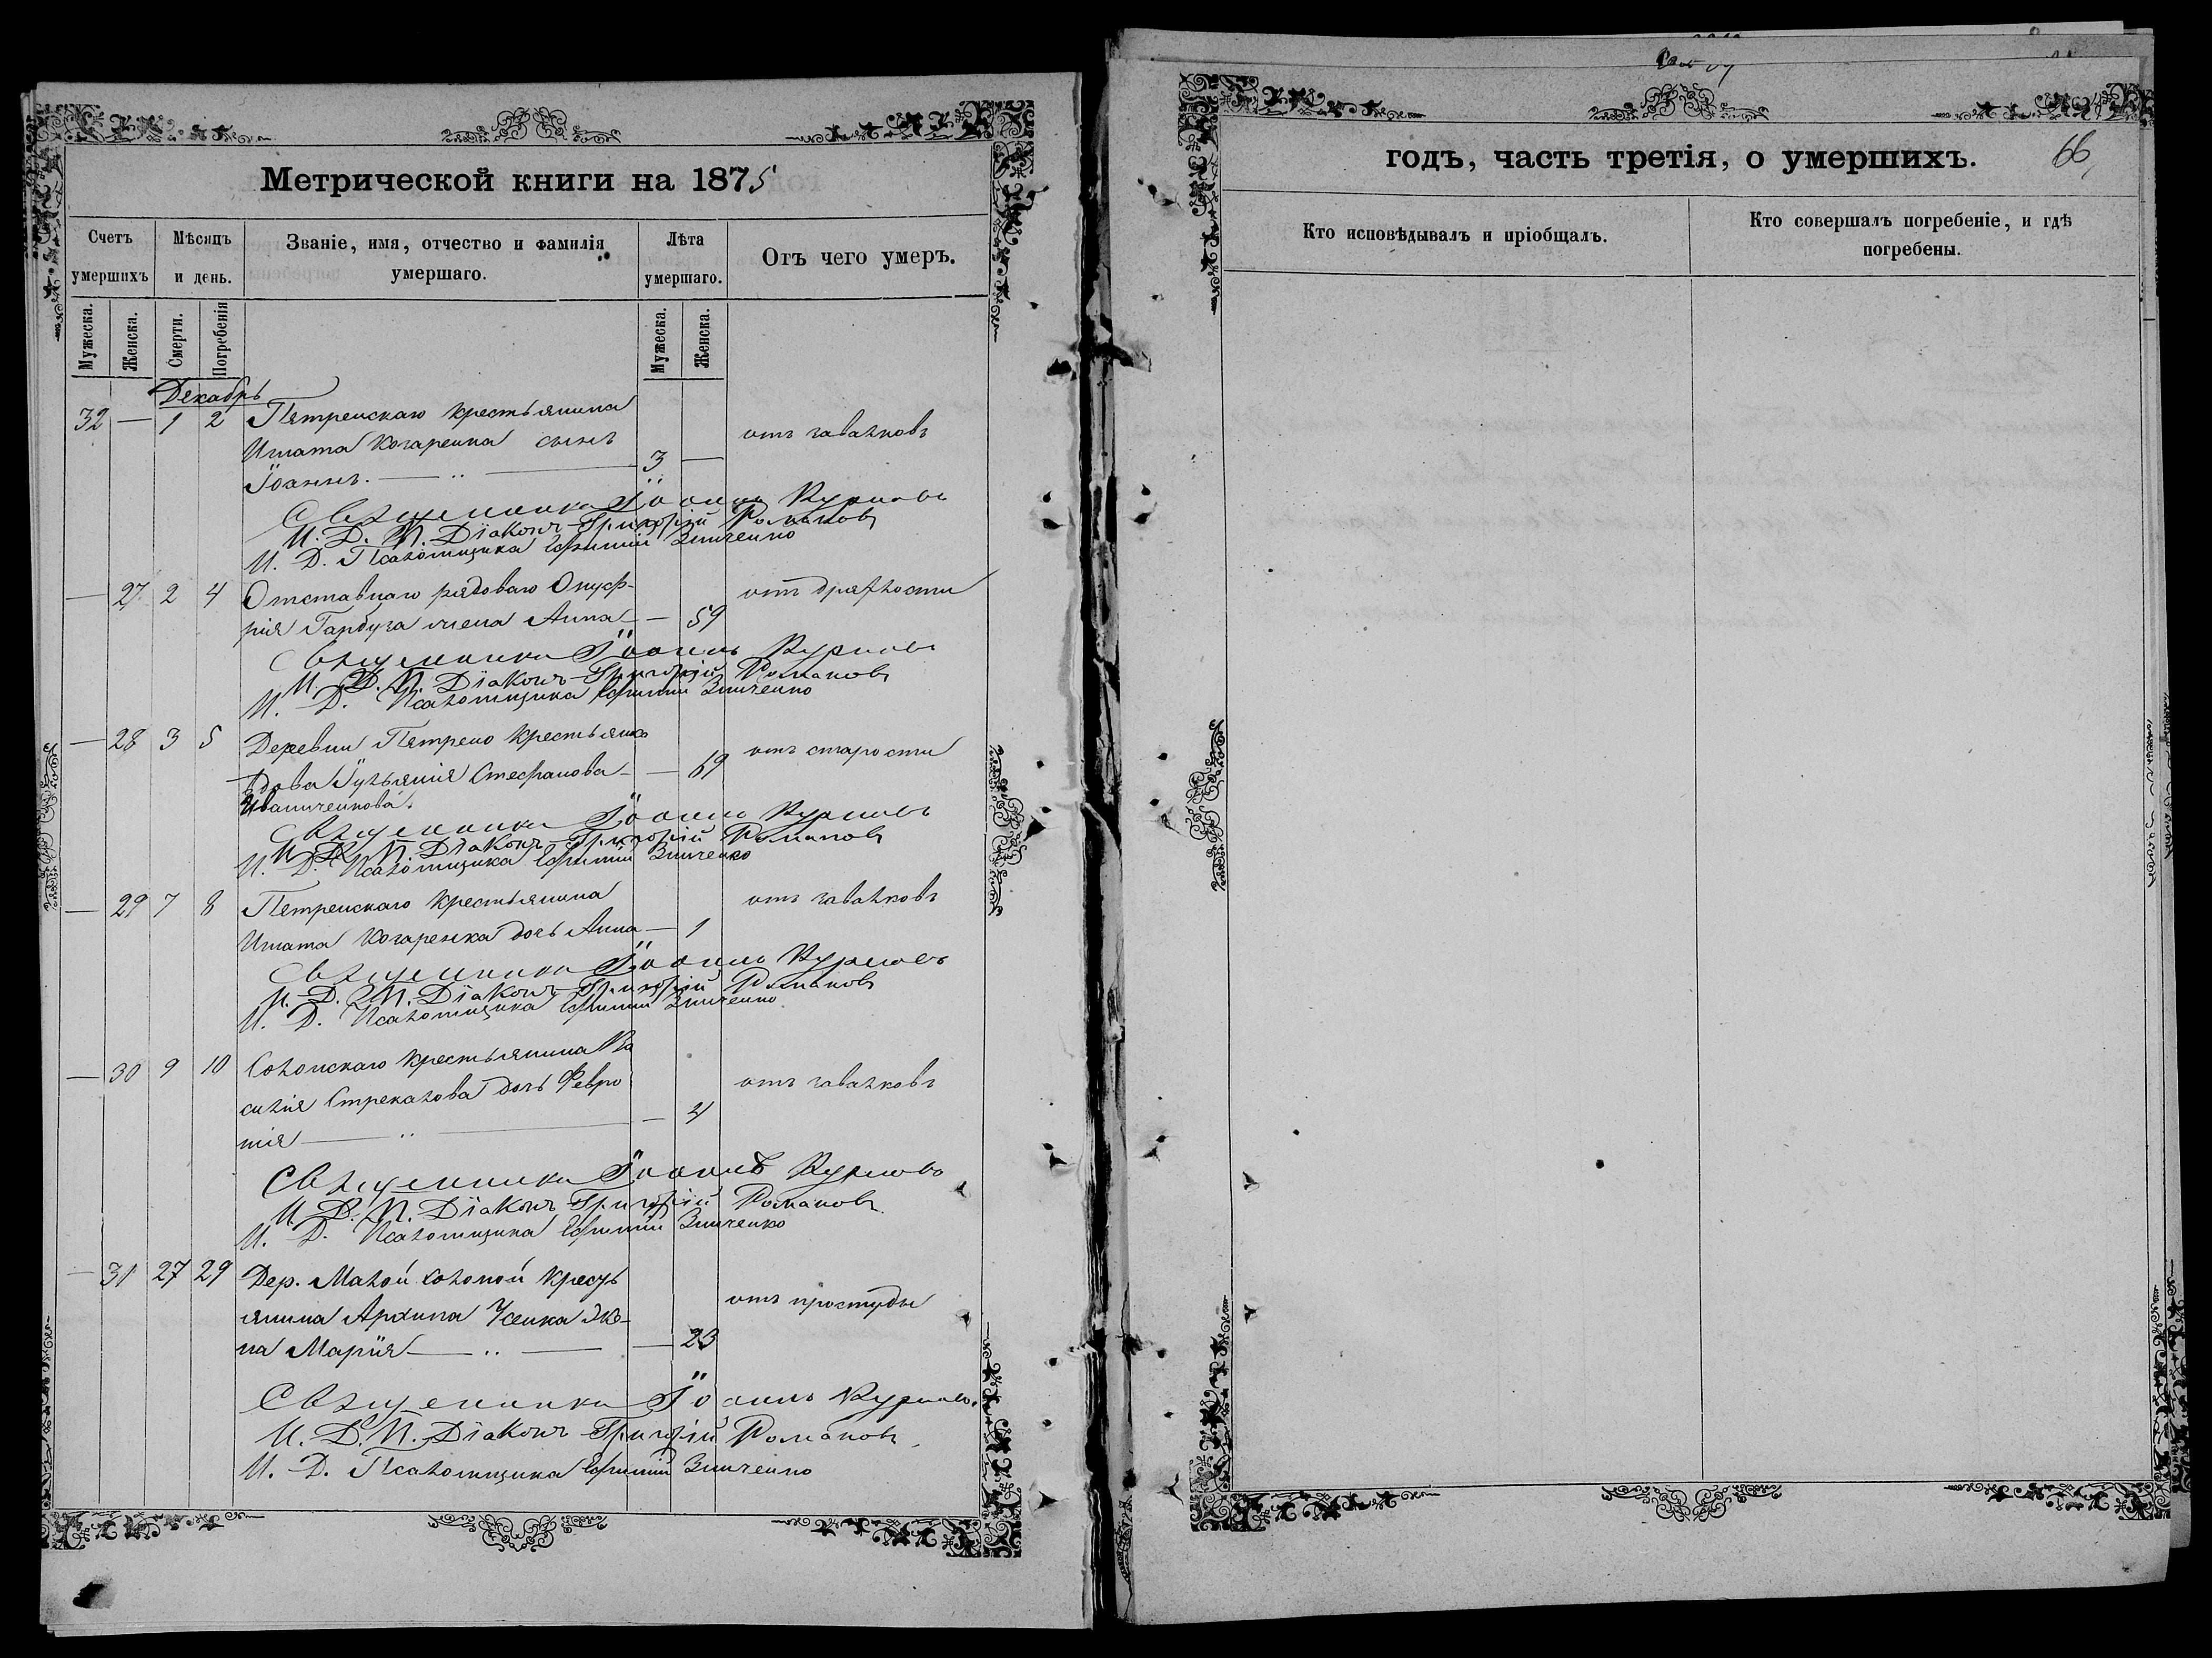 Метрической книги на 1875
Счетъ умершихъ
Мѣсяцъ и день.
Званіе, имя, отчество и фамилія умершаго.
Лѣта умершаго.
Отъ чего умеръ.
Мужеска.
Женска.
Смерти.
Погребенія
Мужеска.
Женска.
Декабрь
32 — 1 2 Петренскаго крестьянина
Игната Кочаренка сынъ
отъ
Іоаннъ. — 3 —
Священникъ Іоаннъ
И. Д. П. Діаконъ Григорій Романовъ
И. Д. Псаломщика Ефимій Зинченко
— 27 2 4 Отставнаго рядоваго Онуф-
отъ дряхлости
рія Гарбуза жена Анна — 59
Священникъ Іоаннъ
И. Д. П. Діаконъ Григорій Романовъ
И. Д. Псаломщика Ефимій Зинченко
— 28 3 5 Деревни Петрено крестьянка
отъ старости
вдова Іульянія Стефанова — 69
Иваниченкова.
Священникъ Іоаннъ
И. Д. П. Діаконъ Григорій Романовъ
И. Д. Псаломщика Ефимій Зинченко
— 29 7 8 Петренскаго крестьянина
отъ
Игната Кочаренка дочь Анна — 1
Священникъ Іоаннъ
И. Д. П. Діаконъ Григорій Романовъ
И. Д. Псаломщика Ефимій Зинченко
— 30 9 10 Солонскаго крестьянина Ва
силія Стрекалова дочь Февро
отъ
нія — — 4
Священникъ Іоаннъ
И. Д. П. Діаконъ Григорій Романовъ
И. Д. Псаломщика Ефимій Зинченко
— 31 27 29 Дер. Малой Солоной кресть
янина Архипа Усенка же-
отъ простуды
на Марія — — 23
Священникъ Іоаннъ
И. Д. П. Діаконъ Григорій Романовъ
И. Д. Псаломщика Ефимій Зинченко
годъ, часть третія, о умершихъ.
66
Кто исповѣдывалъ и пріобщалъ.
Кто совершалъ погребеніе, и гдѣ
погребены.